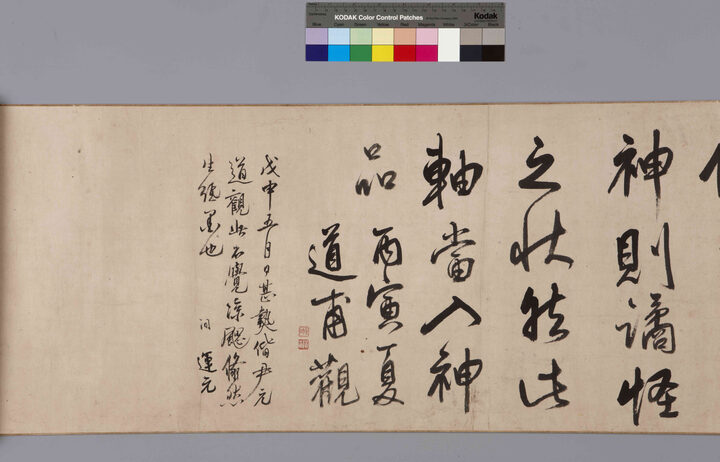 KODAK Color Control Patches
Kodak
Blue Cyan Green Yellow Red Magenta White 3/Color Black
神則譎怪
之狀然此
軸當入神
品 丙寅夏
道甫觀
戊申五月日甚熱偕尹元
道觀此不覺凉颸翛然
生墨也
運元